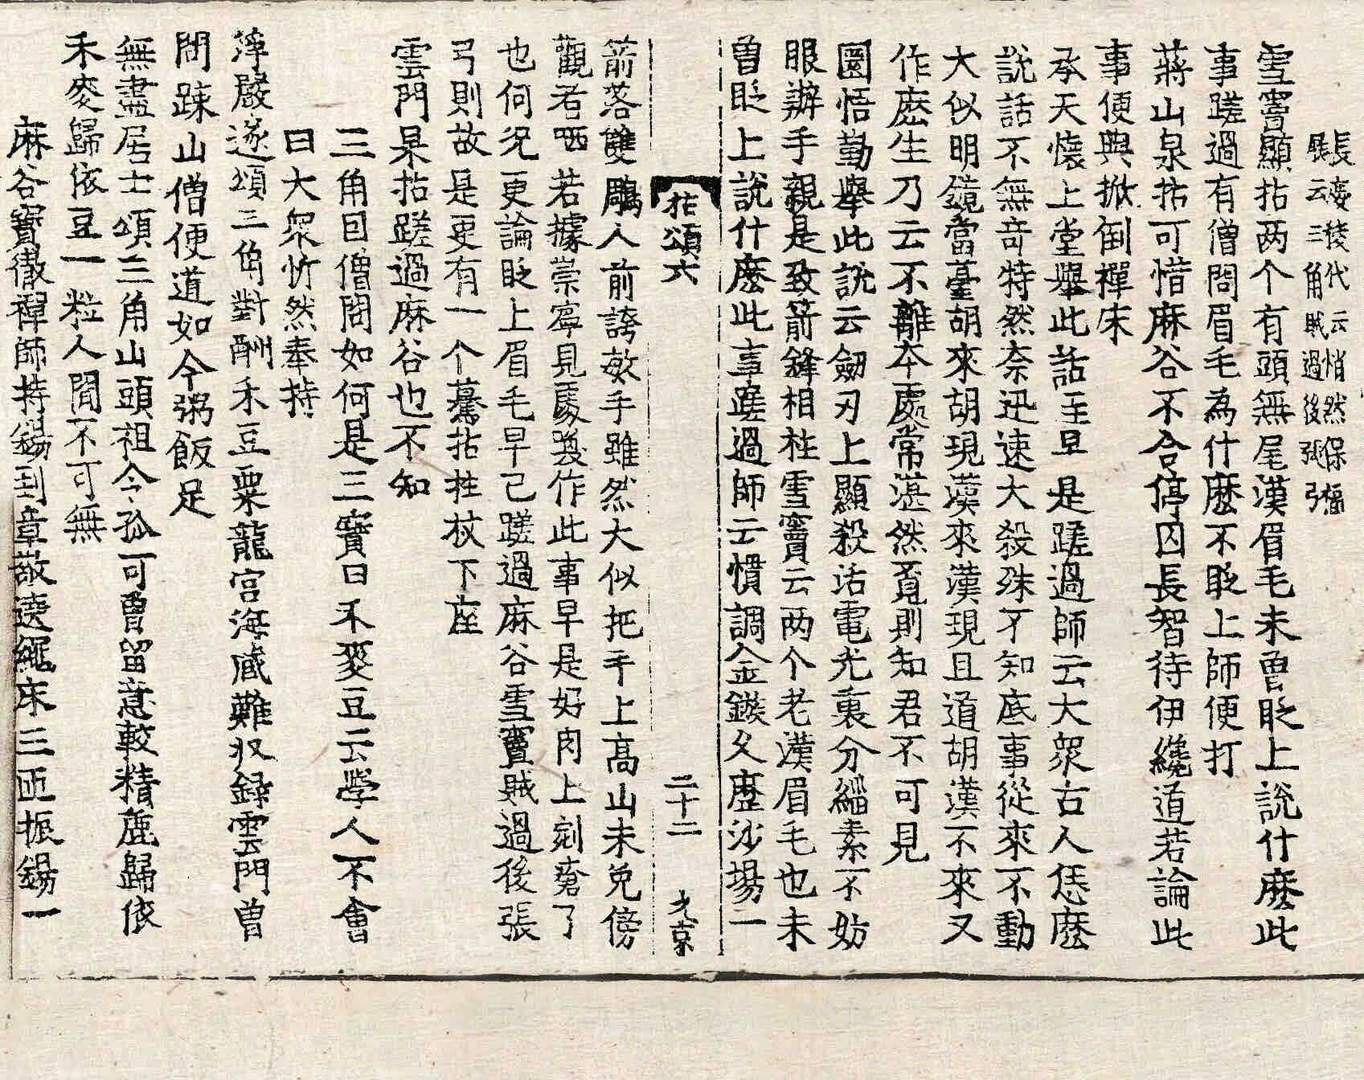 長慶稜代云悄然保福
展云三角賊過後張弓
雪竇顯拈两个有頭無尾漢眉毛未曾眨上說什麽此
事蹉過有僧問眉毛為什麽不眨上師便打
蔣山泉拈可惜麻谷不合停囚長智待伊纔道若論此
事便與掀倒禪床
承天懷上堂舉此話至旦是蹉過師云大衆古人恁麽
說話不無竒特然奈迅速大殺殊不知底事從來不動
大似明鏡當臺胡來胡現漢來漢現且道胡漢不來又
作麽生乃云不離夲處常湛然覔則知君不可見
圜悟勤舉此說云劒刃上顯殺活電光裏分緇素不妨
眼辦手親是致箭鋒相柱雪竇云两个老漢眉毛也未
曾眨上說什麽此事蹉過師云慣調金鏃久歷沙場一
拈頌六 二十二 尤京
箭落雙鵰人前誇敏手雖然大似把手上高山未免傍
觀者哂若據崇寧見處裝作此事早是好肉上剜瘡了
也何况更論眨上眉毛早已蹉過麻谷雪竇賊過後張
弓則故是更有一个驀拈拄杖下座
雲門杲拈蹉過麻谷也不知
三角因僧問如何是三寳曰禾麥豆云學人不會
曰大衆忻然奉持
淨嚴遂頌三角對酬禾豆粟龍宫海藏難収録雲門曾
問踈山僧便道如今粥飯足
無盡居士頌三角山頭祖令孤可曾留意較精麁歸依
禾麥歸依豆一粒人間不可無
麻谷寳徹禪師持錫到章敬遶繩床三匝振錫一